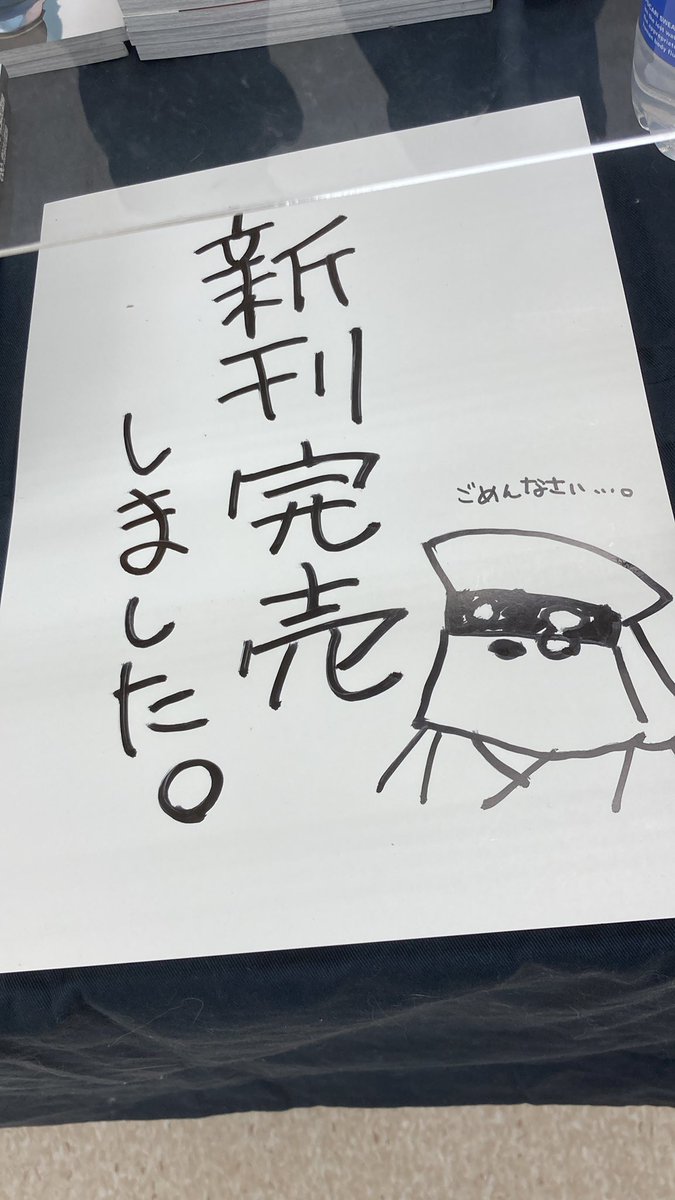 新刊完売
しました。
ごめんなさい…。